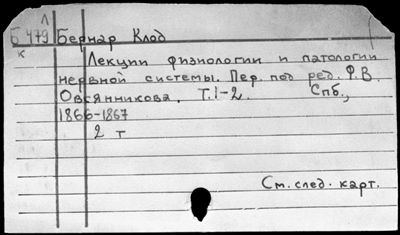 Л
Б 479 Бернар Клод
К
Лекции физиологии и патологии
нервной системы. Пер. под ред. Ф.В.
Овсянникова. Т.1-2. Спб.,
1866-1867
2 т
См. след. карт.